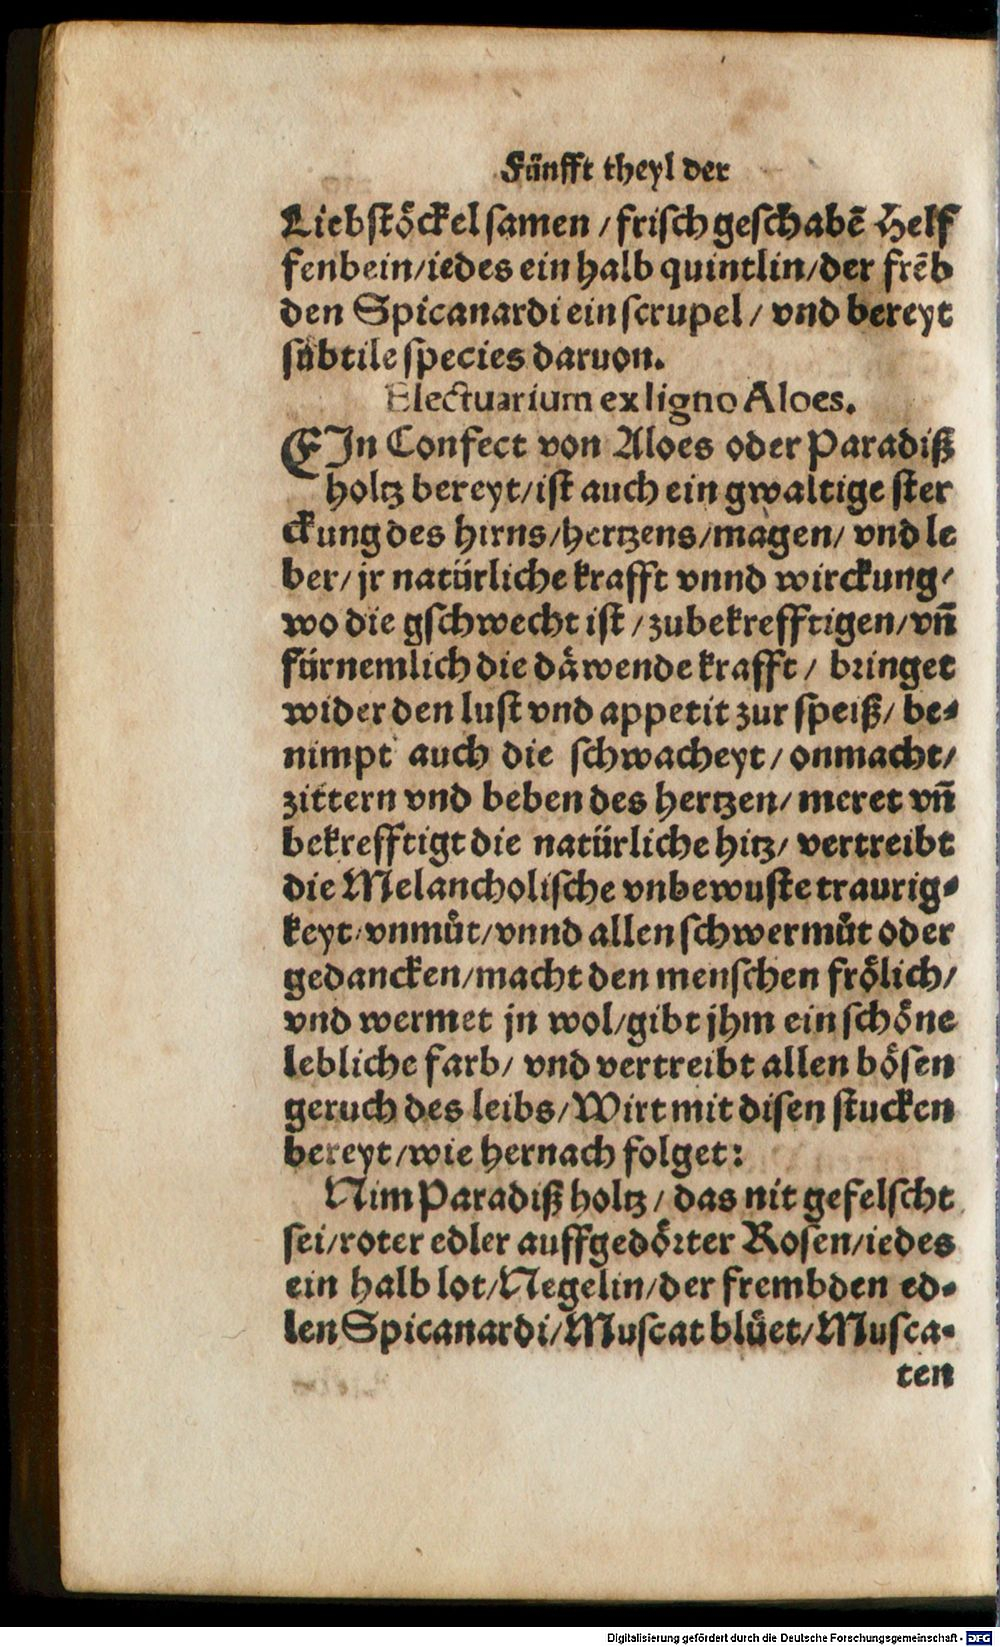 Fünfft theyl der
Liebstöckel samen / frisch geschabē Helf
fenbein/iedes ein halb quintlin/der frēb
den Spicanardi ein scrupel / vnd bereyt
subtile species daruon.
Electuarium ex ligno Aloes.
EIn Confect von Aloes oder Paradiß
holtz bereyt/ist auch ein gwaltige ster
ckung des hirns/hertzens/magen/ vnd le
ber/ jr natürliche krafft vnnd wirckung/
wo die gschwecht ist / zubekrefftigen/vñ
fürnemlich die däwende krafft / bringet
wider den lust vnd appetit zur speiß/ be⸗
nimpt auch die schwacheyt / onmacht/
zittern vnd beben des hertzen/ meret vñ
bekrefftigt die natürliche hitz/ vertreibt
die Melancholische vnbewuste traurig⸗
keyt/vnmůt/vnnd allen schwermůt oder
gedancken/macht den menschen frölich/
vnd wermet jn wol/gibt jhm ein schöne
lebliche farb/ vnd vertreibt allen bösen
geruch des leibs/Wirt mit disen stucken
bereyt/wie hernach folget:
Nim Paradiß holtz / das nit gefelscht
sei/roter edler auffgedörter Rosen/iedes
ein halb lot/Negelin/der frembden ed⸗
len Spicanardi/Muscat blüet/Musca⸗
ten
Digitalisierung gefördert durch die Deutsche Forschungsgemeinschaft - DFG